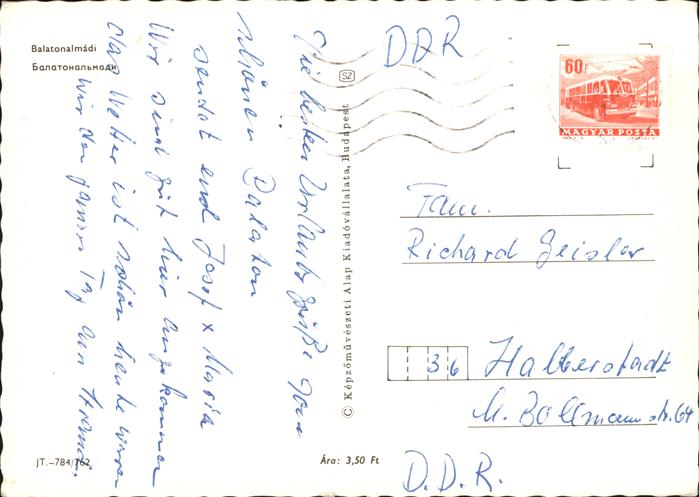 Balatonalmádi
Балатональмади
Die besten Urlaubsgrüße vom
schönen Balaton
sendet euch Josef x Maria
Wir sind gut hier angekommen
das Wetter ist schön heute waren
wir den ganzen Tag am Strand.
JT.–784/762
Ára: 3,50 Ft
© Képzőművészeti Alap Kiadóvállalata, Budapest
SZ
DDR
60f
MAGYAR POSTA
Fam.
Richard Geisler
36 Halberstadt
str. 64
D.D.R.